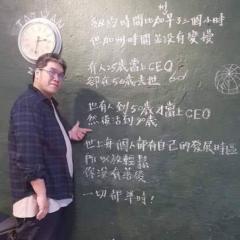 TAIWAN
州
紐約時間比加早三個小時
但加州時間並沒有變慢
有人25歲當上CEO
卻在50歲去世
也有人到50才當上CEO
然後活到90歲
世上每個人都有自己的發展時區
所以放輕鬆
你沒有落後
一切都準時！